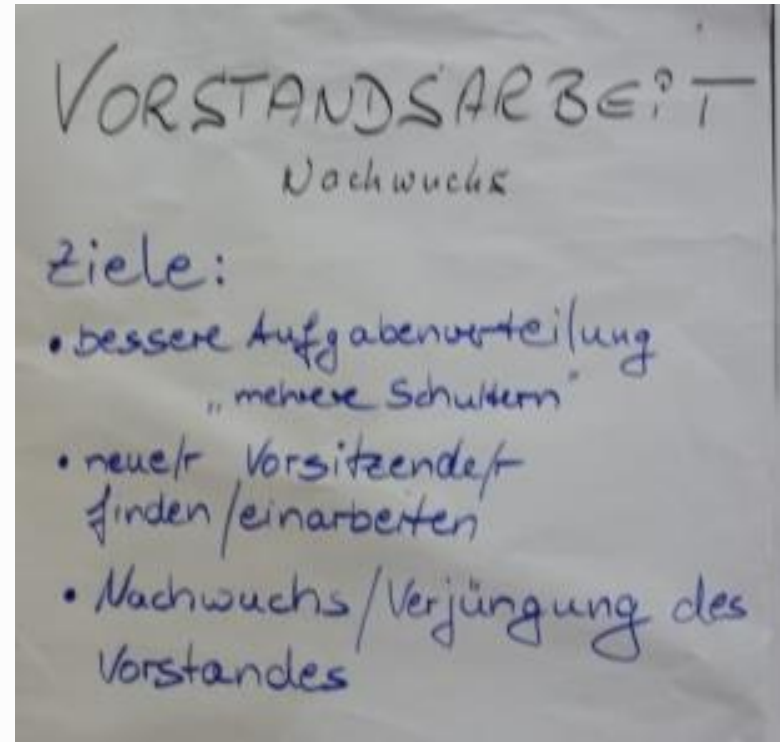 VORSTANDSARBEiT
Nachwuchs
Ziele:
• bessere Aufgabenverteilung
„mehrere Schultern"
• neue/r Vorsitzende/r
finden/einarbeiten
• Nachwuchs/Verjüngung des
Vorstandes